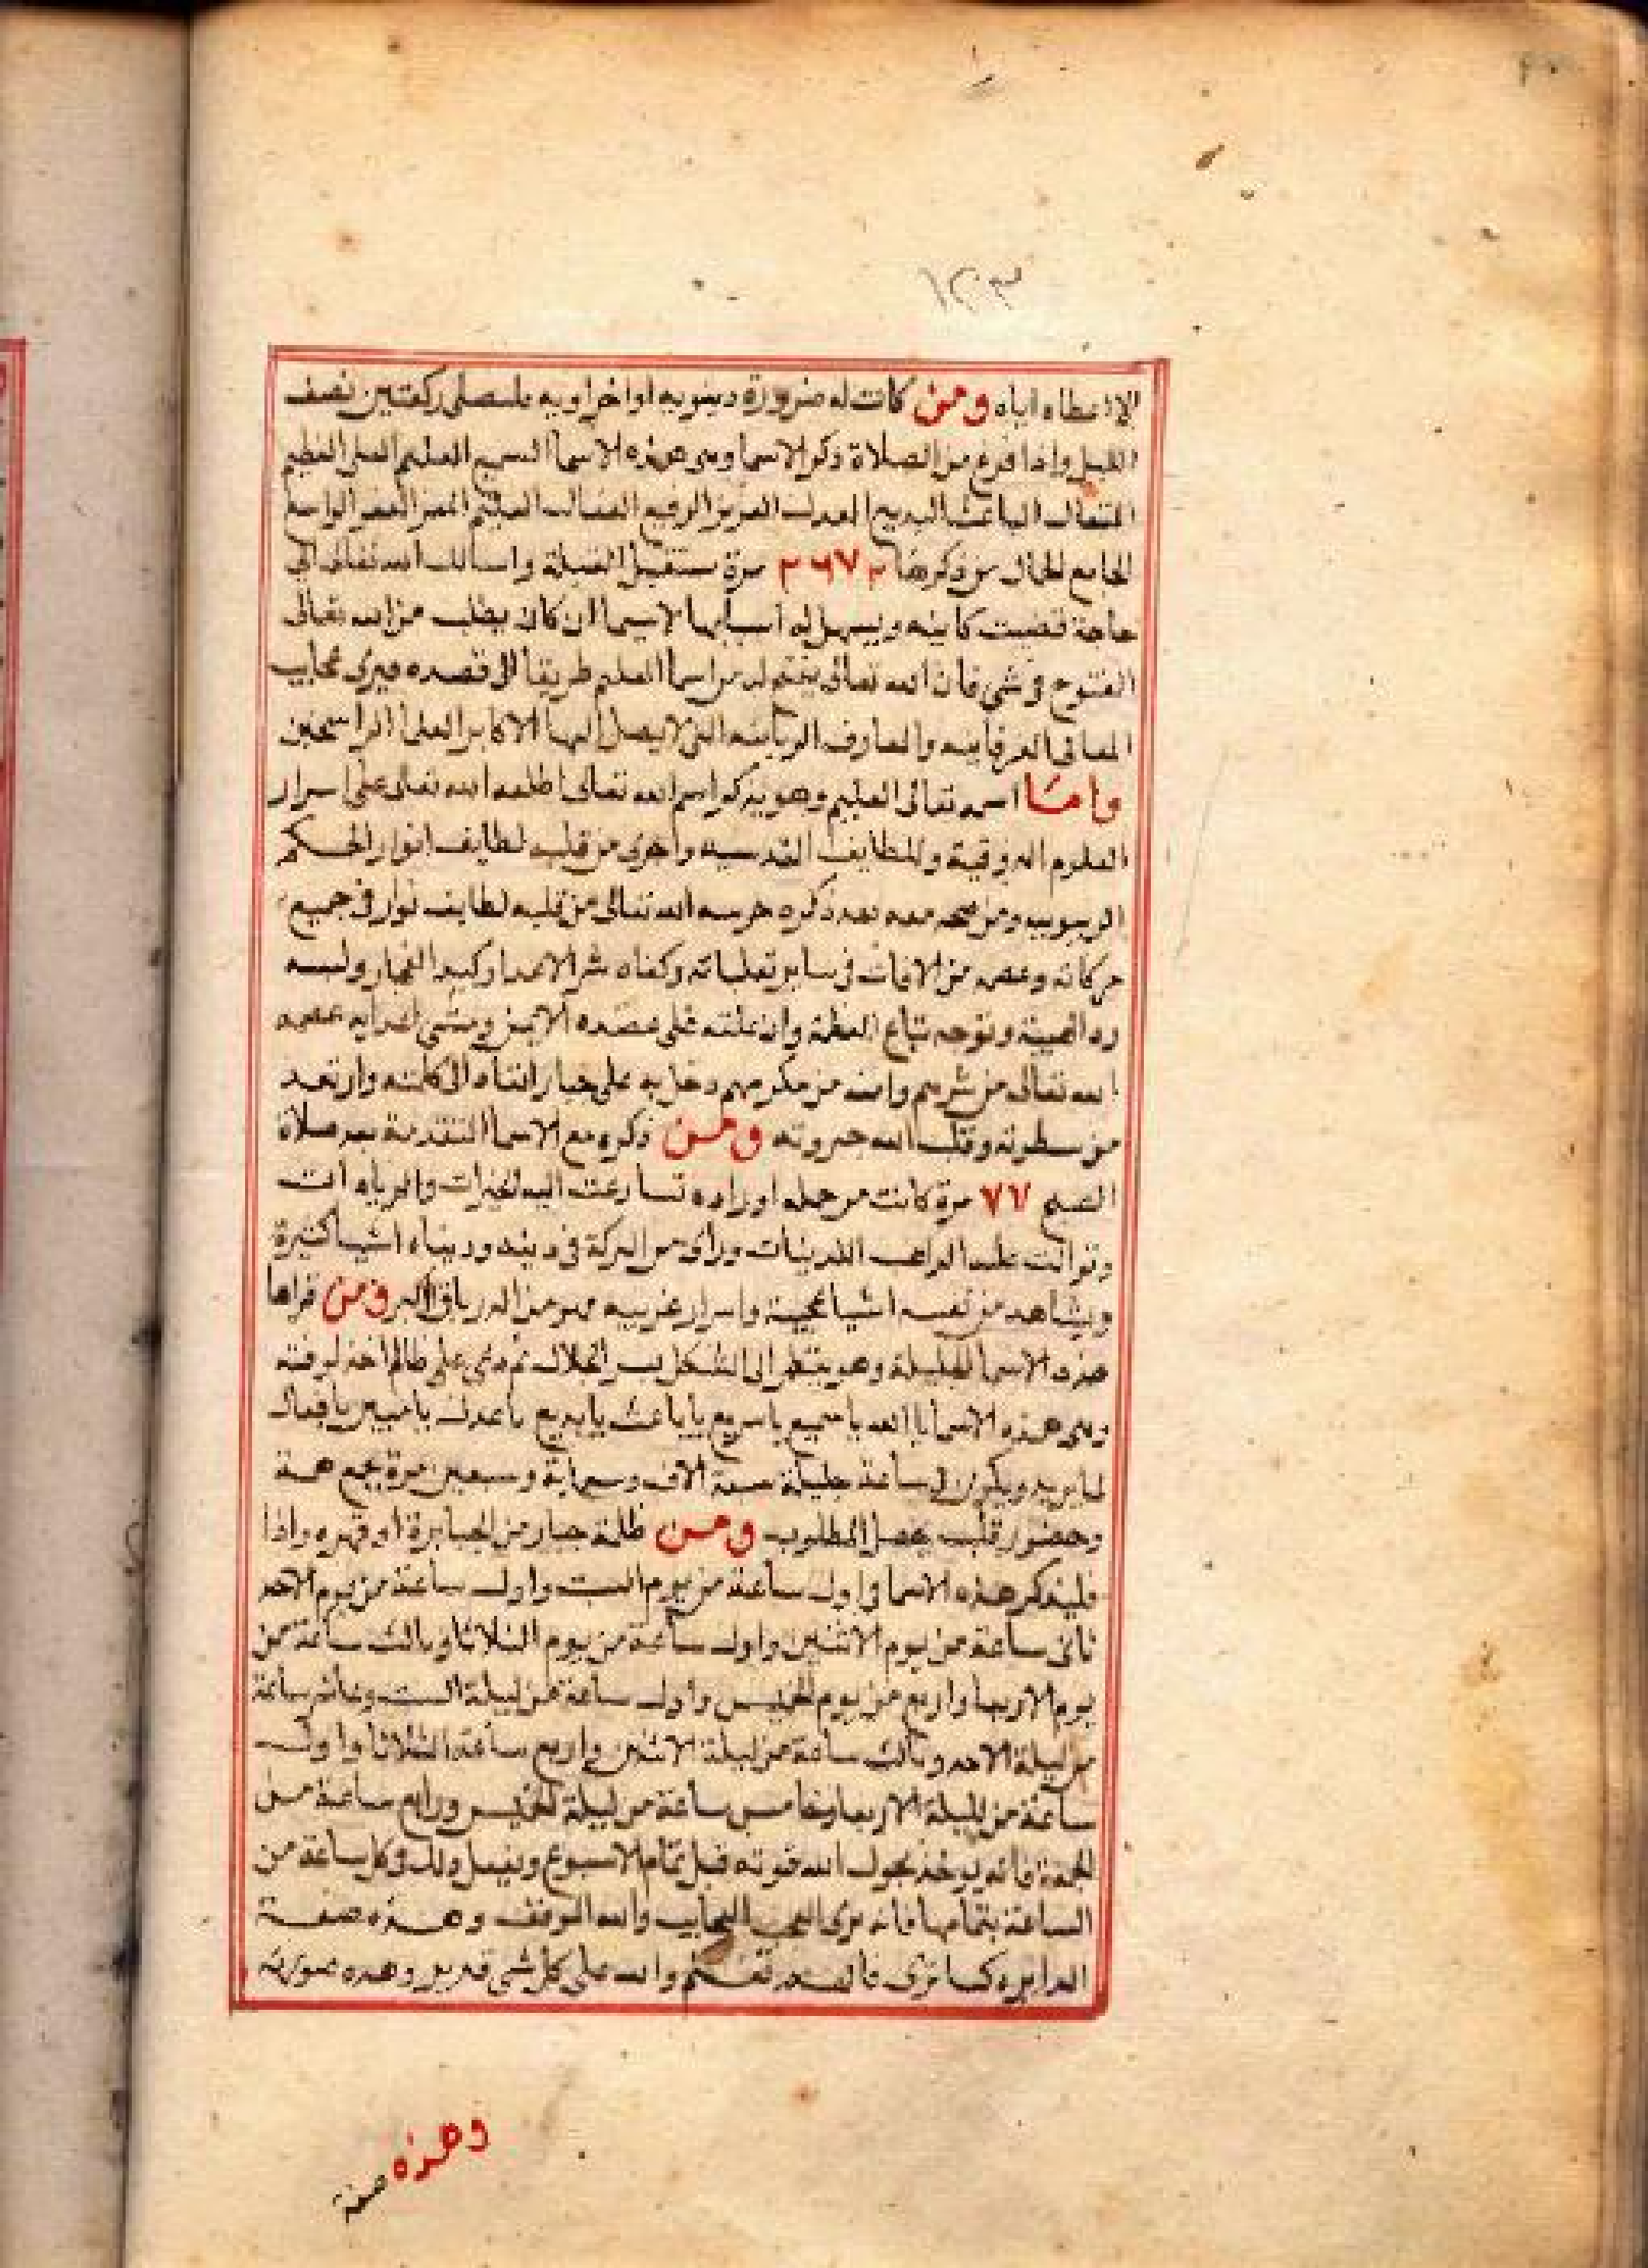 ١٣٠٣
الا اعطاه اياه ومن كانت له ضرورة دينويه او اخراويه فليصلى ركعتين نصف
الليل واذا فرغ من الصلاة ذكر الاسما وهى هذه الاسما السميع العليم العلى العظيم
المتعال الباعث البديع العدل العزيز الرفيع الفعال العليم الواسع
الجامع من ذكرها مرة مستقبل القبلة واسال الله تعالى اي
حاجة قضيت كاينه ويسهل له اسبابها لاسيما ان كان يطلب من الله تعالى
الفتوح فى شى فان الله تعالى يفتح له من اسما العليم طريقا الى قصده فيرى عجايب
المعانى العرفانيه والمعارف الربانيه التى لا يصل اليها الا كابر العلما الراسخين
واما اسمه تعالى العليم وهو يذكر اسم الله تعالى اطلعه الله تعالى على اسرار
العلوم الذوقية واللطايف القدسيه واجرى من قلبه لطايف انوار الحكم
الربوبيه ومن معه بعد ذكره حرسه الله تعالى من قلبه لطايف نوار فى جميع
حركاته وعصم من الافات فى ساير تقلباته وكفاه شر الاعدا وكيد الفجار ولبسه
ردا الهيبة وتوجه بتاج العظمة وان علقه على عضده الايمن ومشى اعدايه عصمه
الله تعالى من شرهم وامنه من مكرهم دخل به على جبار انقاد الى كلمته وارتعد
من سطوته وقلب الله جبروته ومن ذكره مع الاسما المتقدمة بعد صلاة
الصبح ٧٧ مرة كانت من جمله اوراده تسارعت اليه الخيرات
وتوالت عليه وراى من البركة فى دينه وديناه اشيا كثيرة
ويشاهد من نفسه اشيا عجيبة واسرار غريبه ومن قراها
هذه الاسما الجليلة وهو ينظر الى الشكل ثم دعى على ظالم اخذ لوقته
وهى هذه الاسما يا الله يا سميع يا سريع يا باعث يا بديع يا عدل يا مبين يا فعال
لما يريد ويكون فى ساعة جليلة سبعة الاف وسبعماية وسبعين مرة بجمع همة
وحضور قلب يحصل المطلوب ومن ظلمه جبار من الجبابرة او قهره واذا
فليذكر هذه الاسما فى اول ساعة من يوم السبت واول ساعة من يوم الاحد
ثانى ساعة من يوم الاثنين واول ساعة من يوم الثلاثا وثالث ساعة من
يوم الاربعا واربع من يوم الخميس واول ساعة من ليلة السبت ساعة
من ليلة الاحد وثالث ساعة من ليلة الاثنين واربع ساعة الثلاثا واول
ساعة من ليلة الاربعا وخامس ساعة من ليلة الخميس ورابع ساعة من
الجمعة فانه يوخذ بحول الله قوته قبل تمام الاسبوع ويفعل ذلك فى كل ساعة من
الساعة بتمامها فانه يرى العجب العجايب والله الموفق وهذه صفة
الدايره كما ترى والله على كل شى قدير وهذه صورته
وهذه
صفة